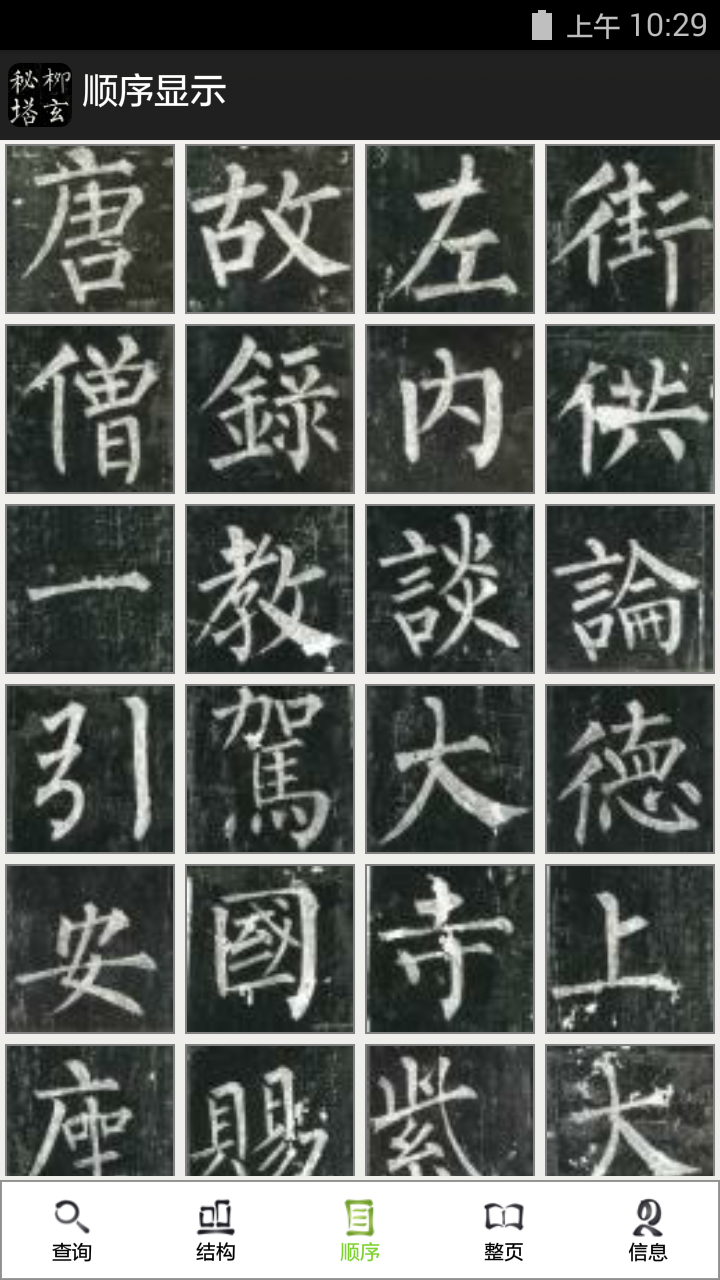 上午 10:29
秘 柳
塔 玄
顺序显示
唐 故 左 街
僧 録 内 供
一 教 談 論
引 駕 大 德
安 國 寺 上
座 賜 紫 大
查询 结构 顺序 整页 信息